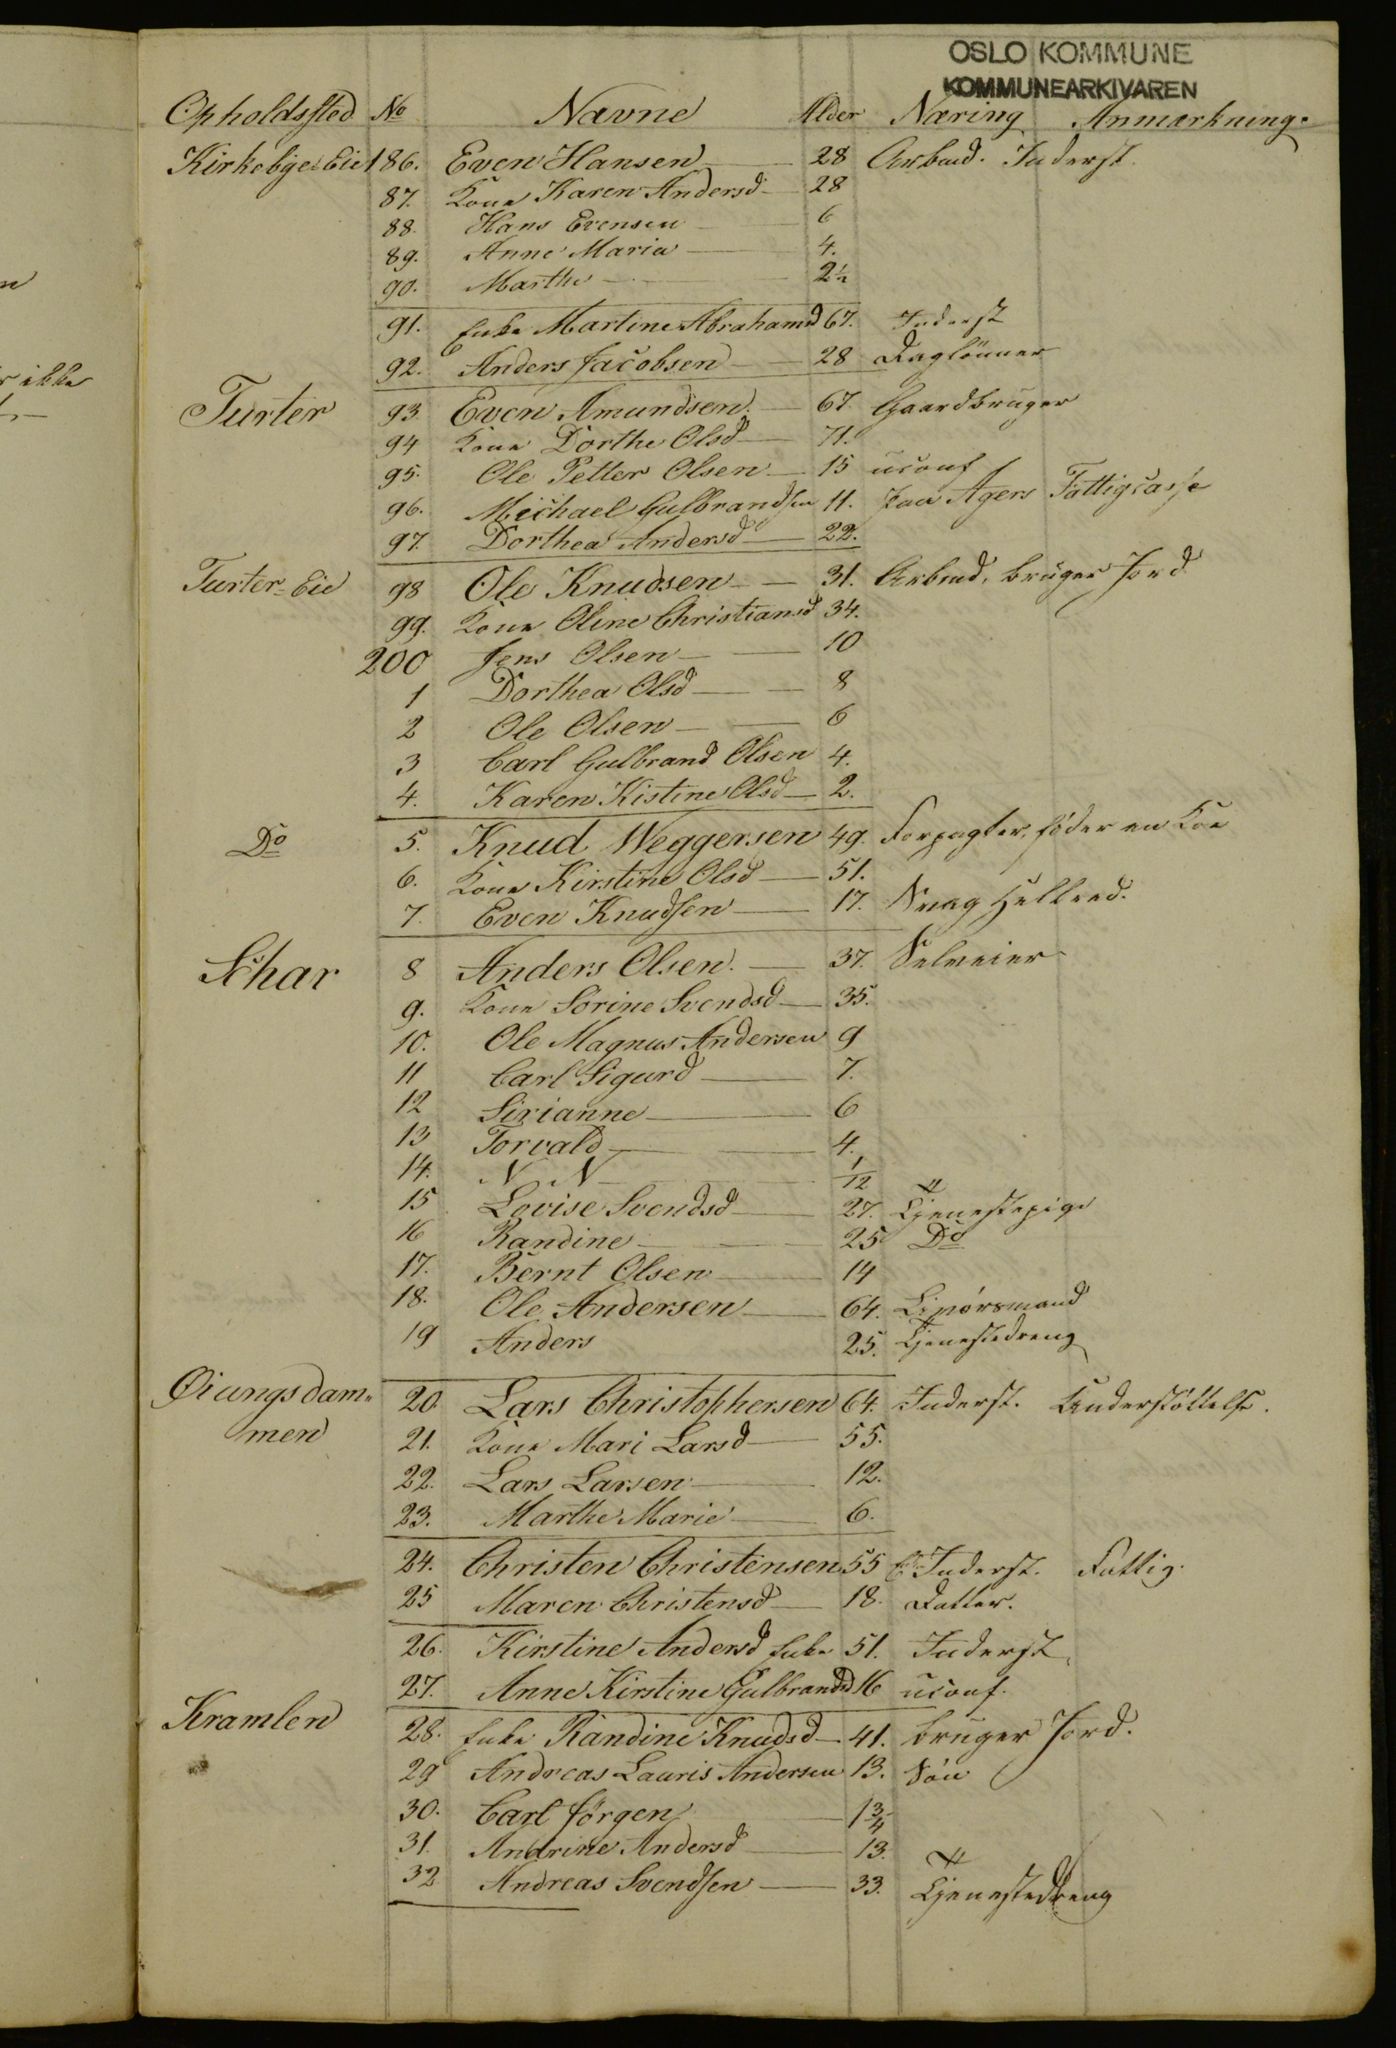 OSLO KOMMUNE
KOMMUNEARKIVAREN
Opholdssted No Navne Alder Næring Anmærkning.
Kirkebye-Eie 186. Even Hansen 28 Arbmd. Inderst
87. Kone Karen Andersd 28
88. Hans Evensen 6
89. Anne Maria 4.
90. Marthe 2½
91. Enke Martine Abrahamsd 67. Inderst
92. Anders Jacobsen 28 Daglönner
Turter 93 Even Amundsen. 67 Gaardbruger
94 Kone Dorthe Olsd 71.
95. Ole Petter Olsen 15 uconf
96. Michael Gulbrandsen 11. paa Agers Fattigcasse
97. Dorthea Andersd 22.
Turter-Eie 98 Ole Knudsen 31. Arbmd, bruger Jord
99. Kone Oline Christiansd 34.
200 Jens Olsen 10
1 Dorthea Olsd 8
2 Ole Olsen 6
3 Carl Gulbrand Olsen 4.
4. Karen Kistine Olsd 2.
Do 5. Knud Weggersen 49. Forpagter, föder en Koe
6. Kone Kirstine Olsd 51.
7. Even Knudsen 17. Svag Helbred.
Schar 8 Anders Olsen. 37. Selveier
9. Kone Sörine Svendsd 35.
10. Ole Magnus Andersen 9
11 Carl Sigurd 7.
12 Sirianne 6
13 Torvald 4.
14. N N 1/12
15 Lovise Svendsd 27. Tjenestepige
16 Randine 25 Do
17. Bernt Olsen 14
18. Ole Andersen 64. Livörsmand
19 Anders 25. Tjenestedreng
Øiungsdam- 20. Lars Christophersen 64. Inderst. Understöttelse.
men 21. Kone Mari Larsd 55.
22. Lars Larsen 12.
23. Marthe Marie 6.
24. Christen Christensen 55 Inderst. Fattig.
25 Maren Christensd 18. Datter.
26. Kirstine Andersd Enke 51. Inderst,
27. Anne Kirstine Gulbrandsd 16 uconf.
Kramlen 28. Enke Randine Knudsd 41. bruger Jord.
29 Andreas Lauris Andersen 13. Sön
30. Carl Jörgen 1¾
31. Andrine Andersd 13.
32 Andreas Svendsen 33. Tjenestedreng